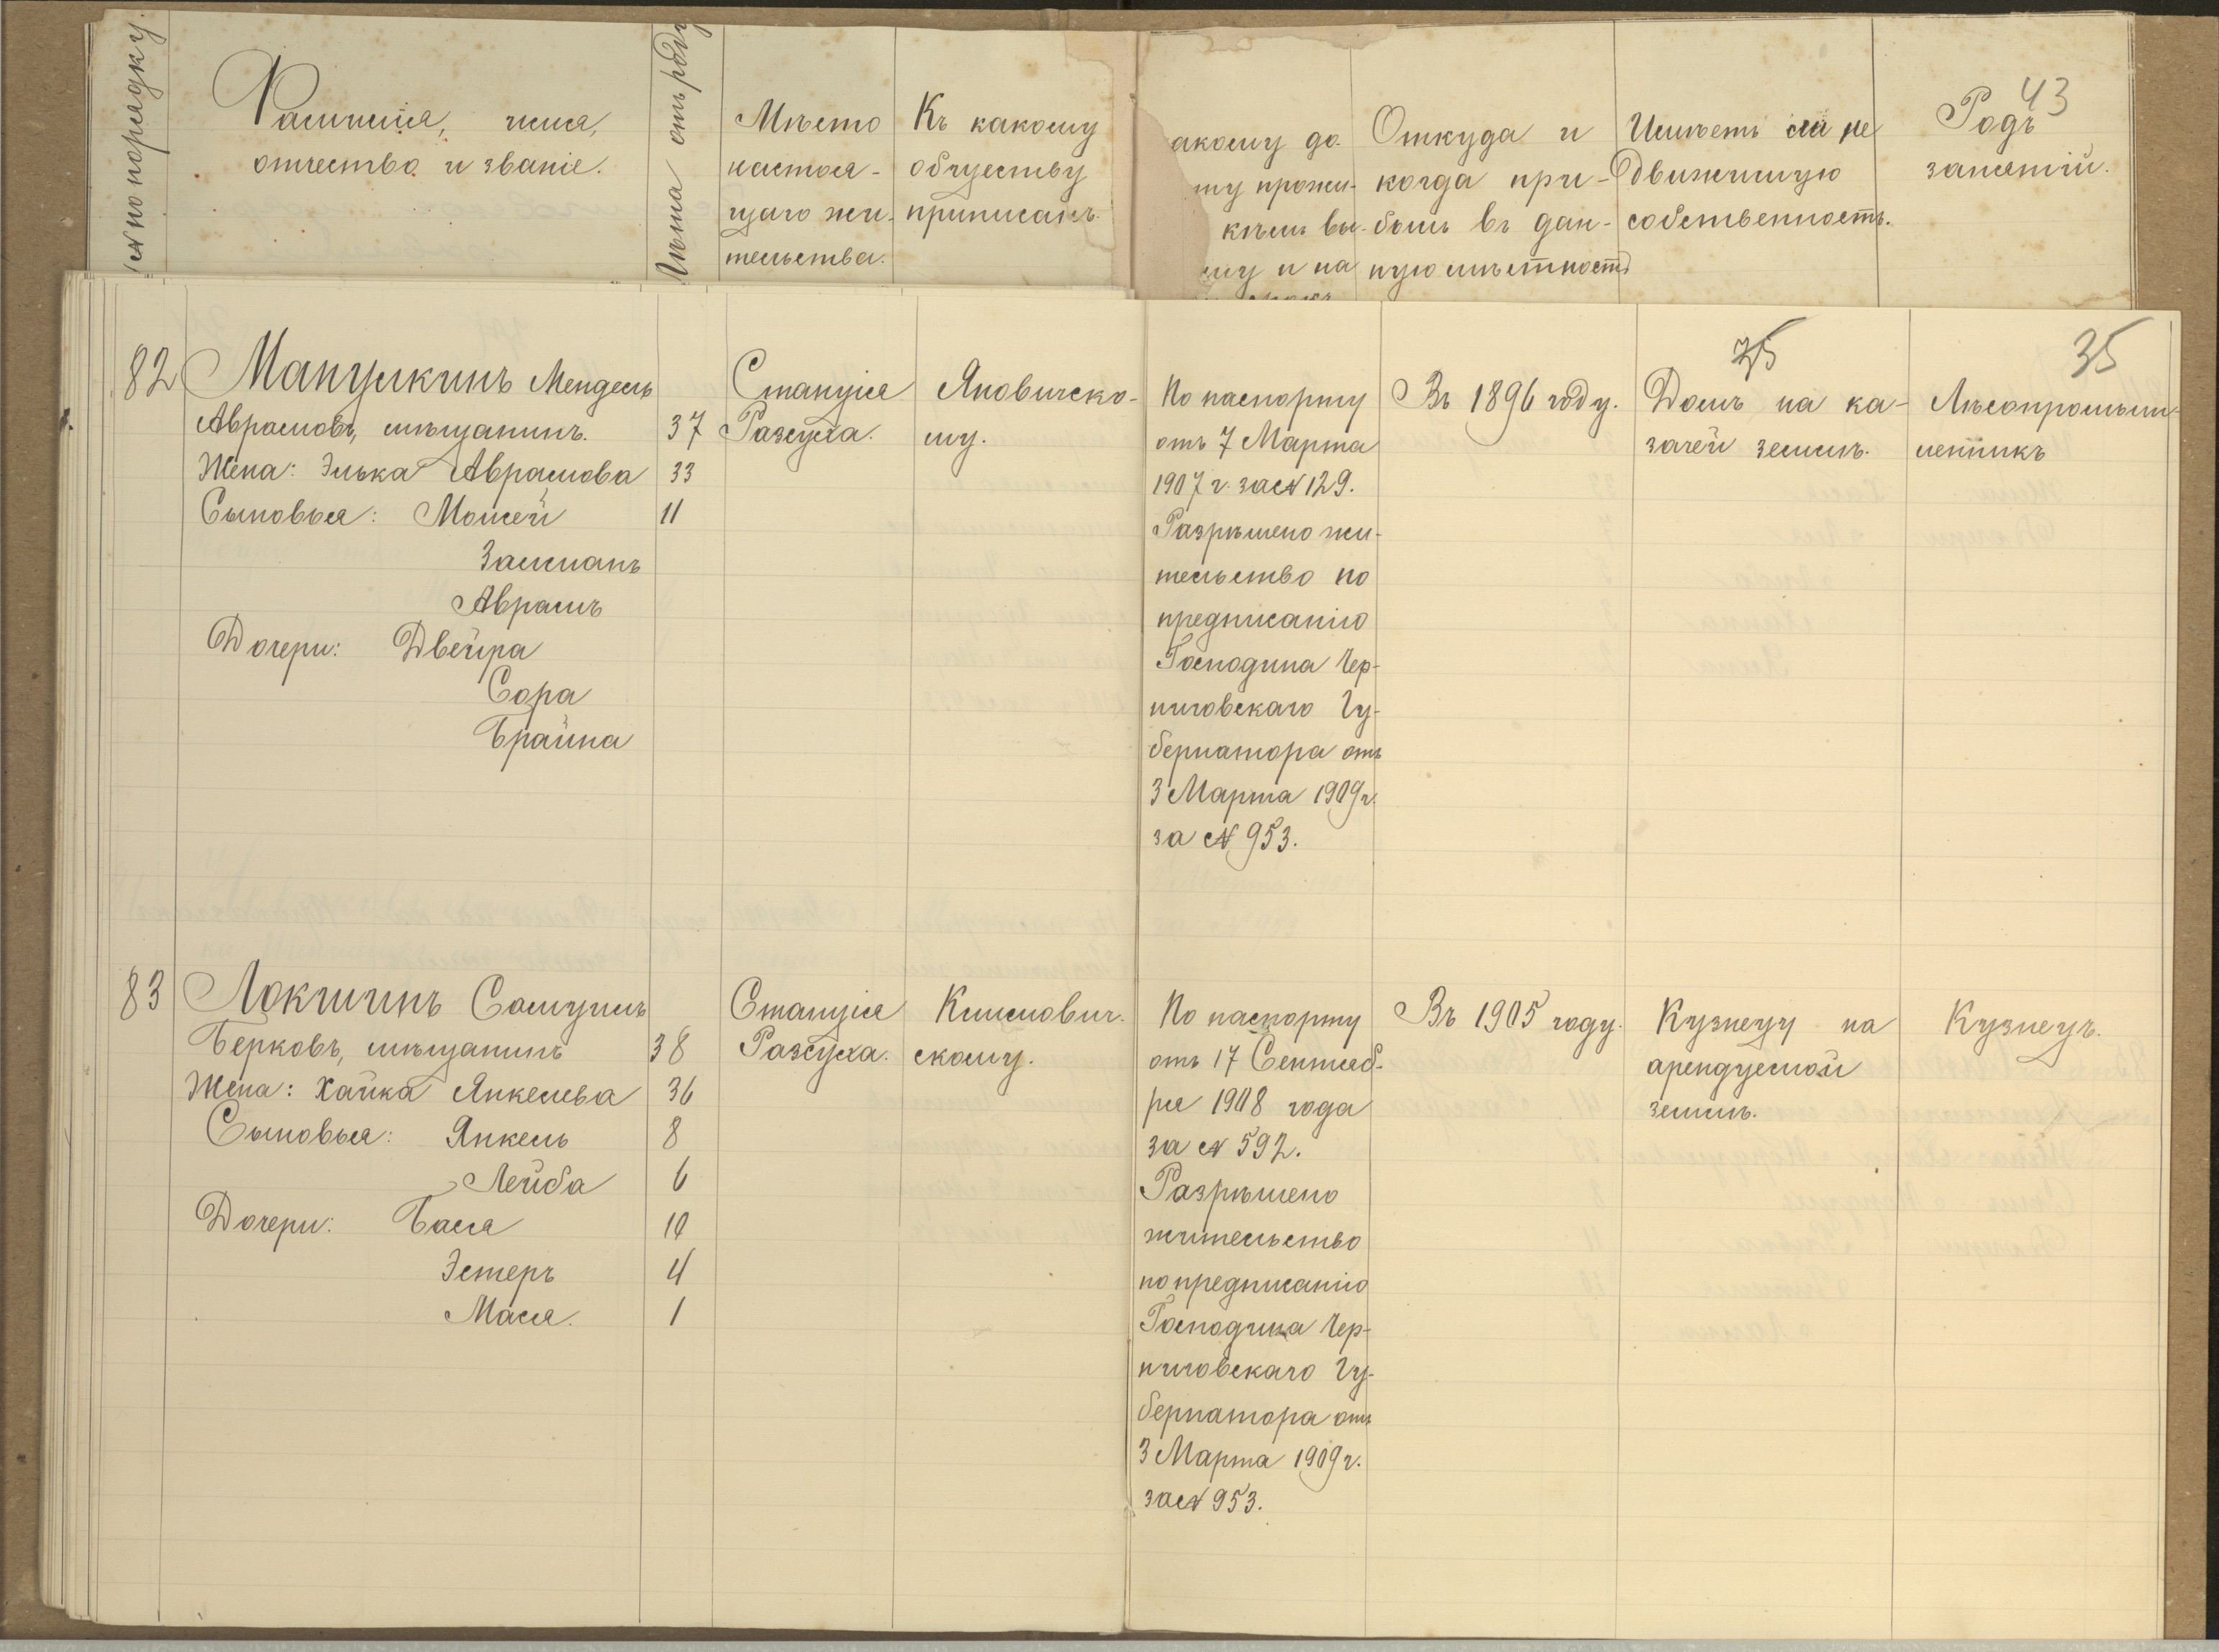 № по порядку.
Фамилія, имя,
отчество и званіе.
Лѣта отъ роду
Мѣсто
настоя-
щаго жи-
тельства.
Къ какому
обществу
приписанъ.
акому до-
ту прожи-
кѣмъ вы-
му и на
срокъ
Откуда и
когда при-
былъ въ дан-
ную мѣстность
Имѣетъ ли не
движимую
собственность.
43
Родъ
занятій.
35
35
82
Манушкинъ Мендель
Абрамовъ, мѣщанинъ. 37
Жена: Элька Абрамова 33
Сыновья: Мовшей 11
Залманъ
Абрамъ
Дочери: Двейра
Сора
Брайна
Станція
Разсуха.
Яновичско-
му.
По паспорту
отъ 7 Марта
1907 г. за № 129.
Разрѣшено жи-
тельство по
предписанію
Господина Чер-
ниговскаго Гу-
бернатора отъ
3 Марта 1909 г.
за № 953.
Въ 1896 году.
Домъ на ка-
зачей землѣ.
Лѣсопромыш-
ленникъ
83
Локшинъ Самуилъ
Берковъ, мѣщанинъ 38
Жена: Хайка Янкелева 36
Сыновья: Янкель 8
Лейба 6
Дочери: Бася 10
Эстеръ 4
Мася. 1
Станція
Разсуха.
Климович-
скому.
По паспорту
отъ 17 Сентяб-
ря 1908 года
за № 592.
Разрѣшено
жительство
по предписанію
Господина Чер-
ниговскаго Гу-
бернатора отъ
3 Марта 1909 г.
за № 953.
Въ 1905 году.
Кузнецу на
арендуемой
землѣ.
Кузнецъ.